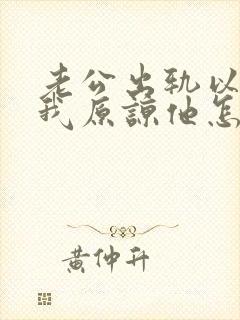 老公出轨以
我原谅他怎
黄仲升